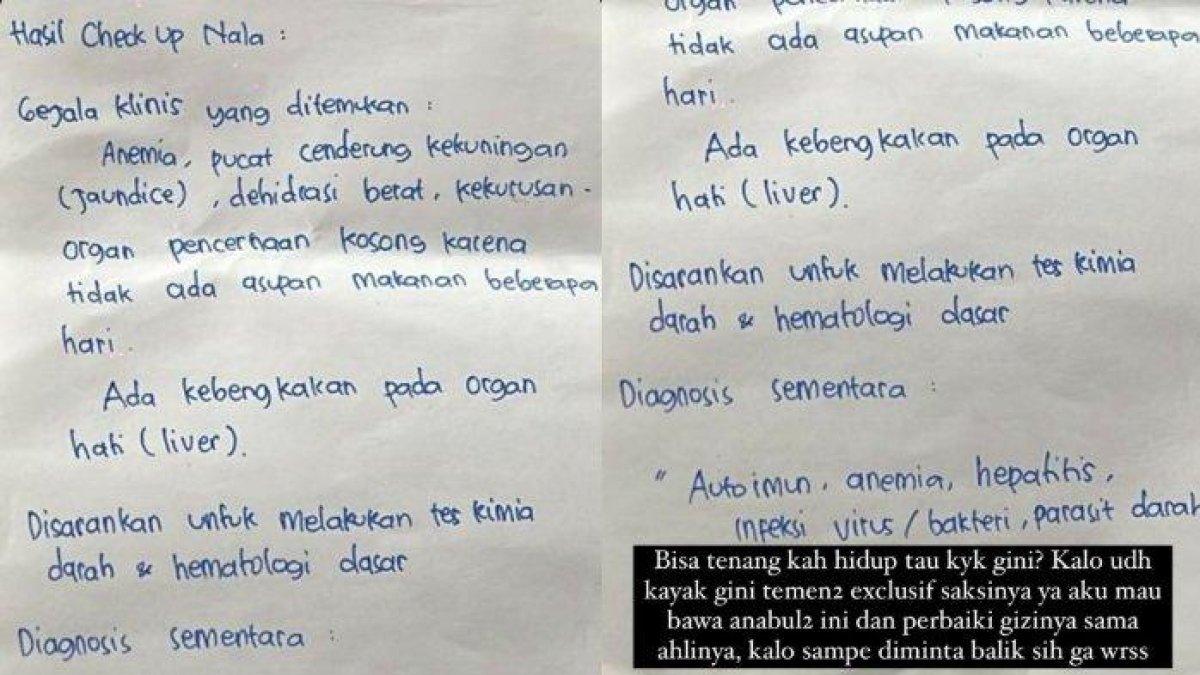 Hasil Check Up Nala :
Gejala klinis yang ditemukan :
Anemia, pucat cenderung kekuningan
(Jaundice), dehidrasi berat, kekurusan -
organ pencernaan kosong karena
tidak ada asupan makanan beberapa
hari.
Ada kebengkakan pada organ
hati (liver).
Disarankan untuk melakukan tes kimia
darah & hematologi dasar
Diagnosis sementara :
organ
tidak ada asupan makanan beberapa
hari.
Ada kebengkakan pada organ
hati (liver).
Disarankan untuk melakukan tes kimia
darah & hematologi dasar
Diagnosis sementara :
" Autoimun, anemia, hepatitis,
infeksi virus / bakteri, parasit darah
Bisa tenang kah hidup tau kyk gini? Kalo udh
kayak gini temen2 exclusif saksinya ya aku mau
bawa anabul2 ini dan perbaiki gizinya sama
ahlinya, kalo sampe diminta balik sih ga wrss